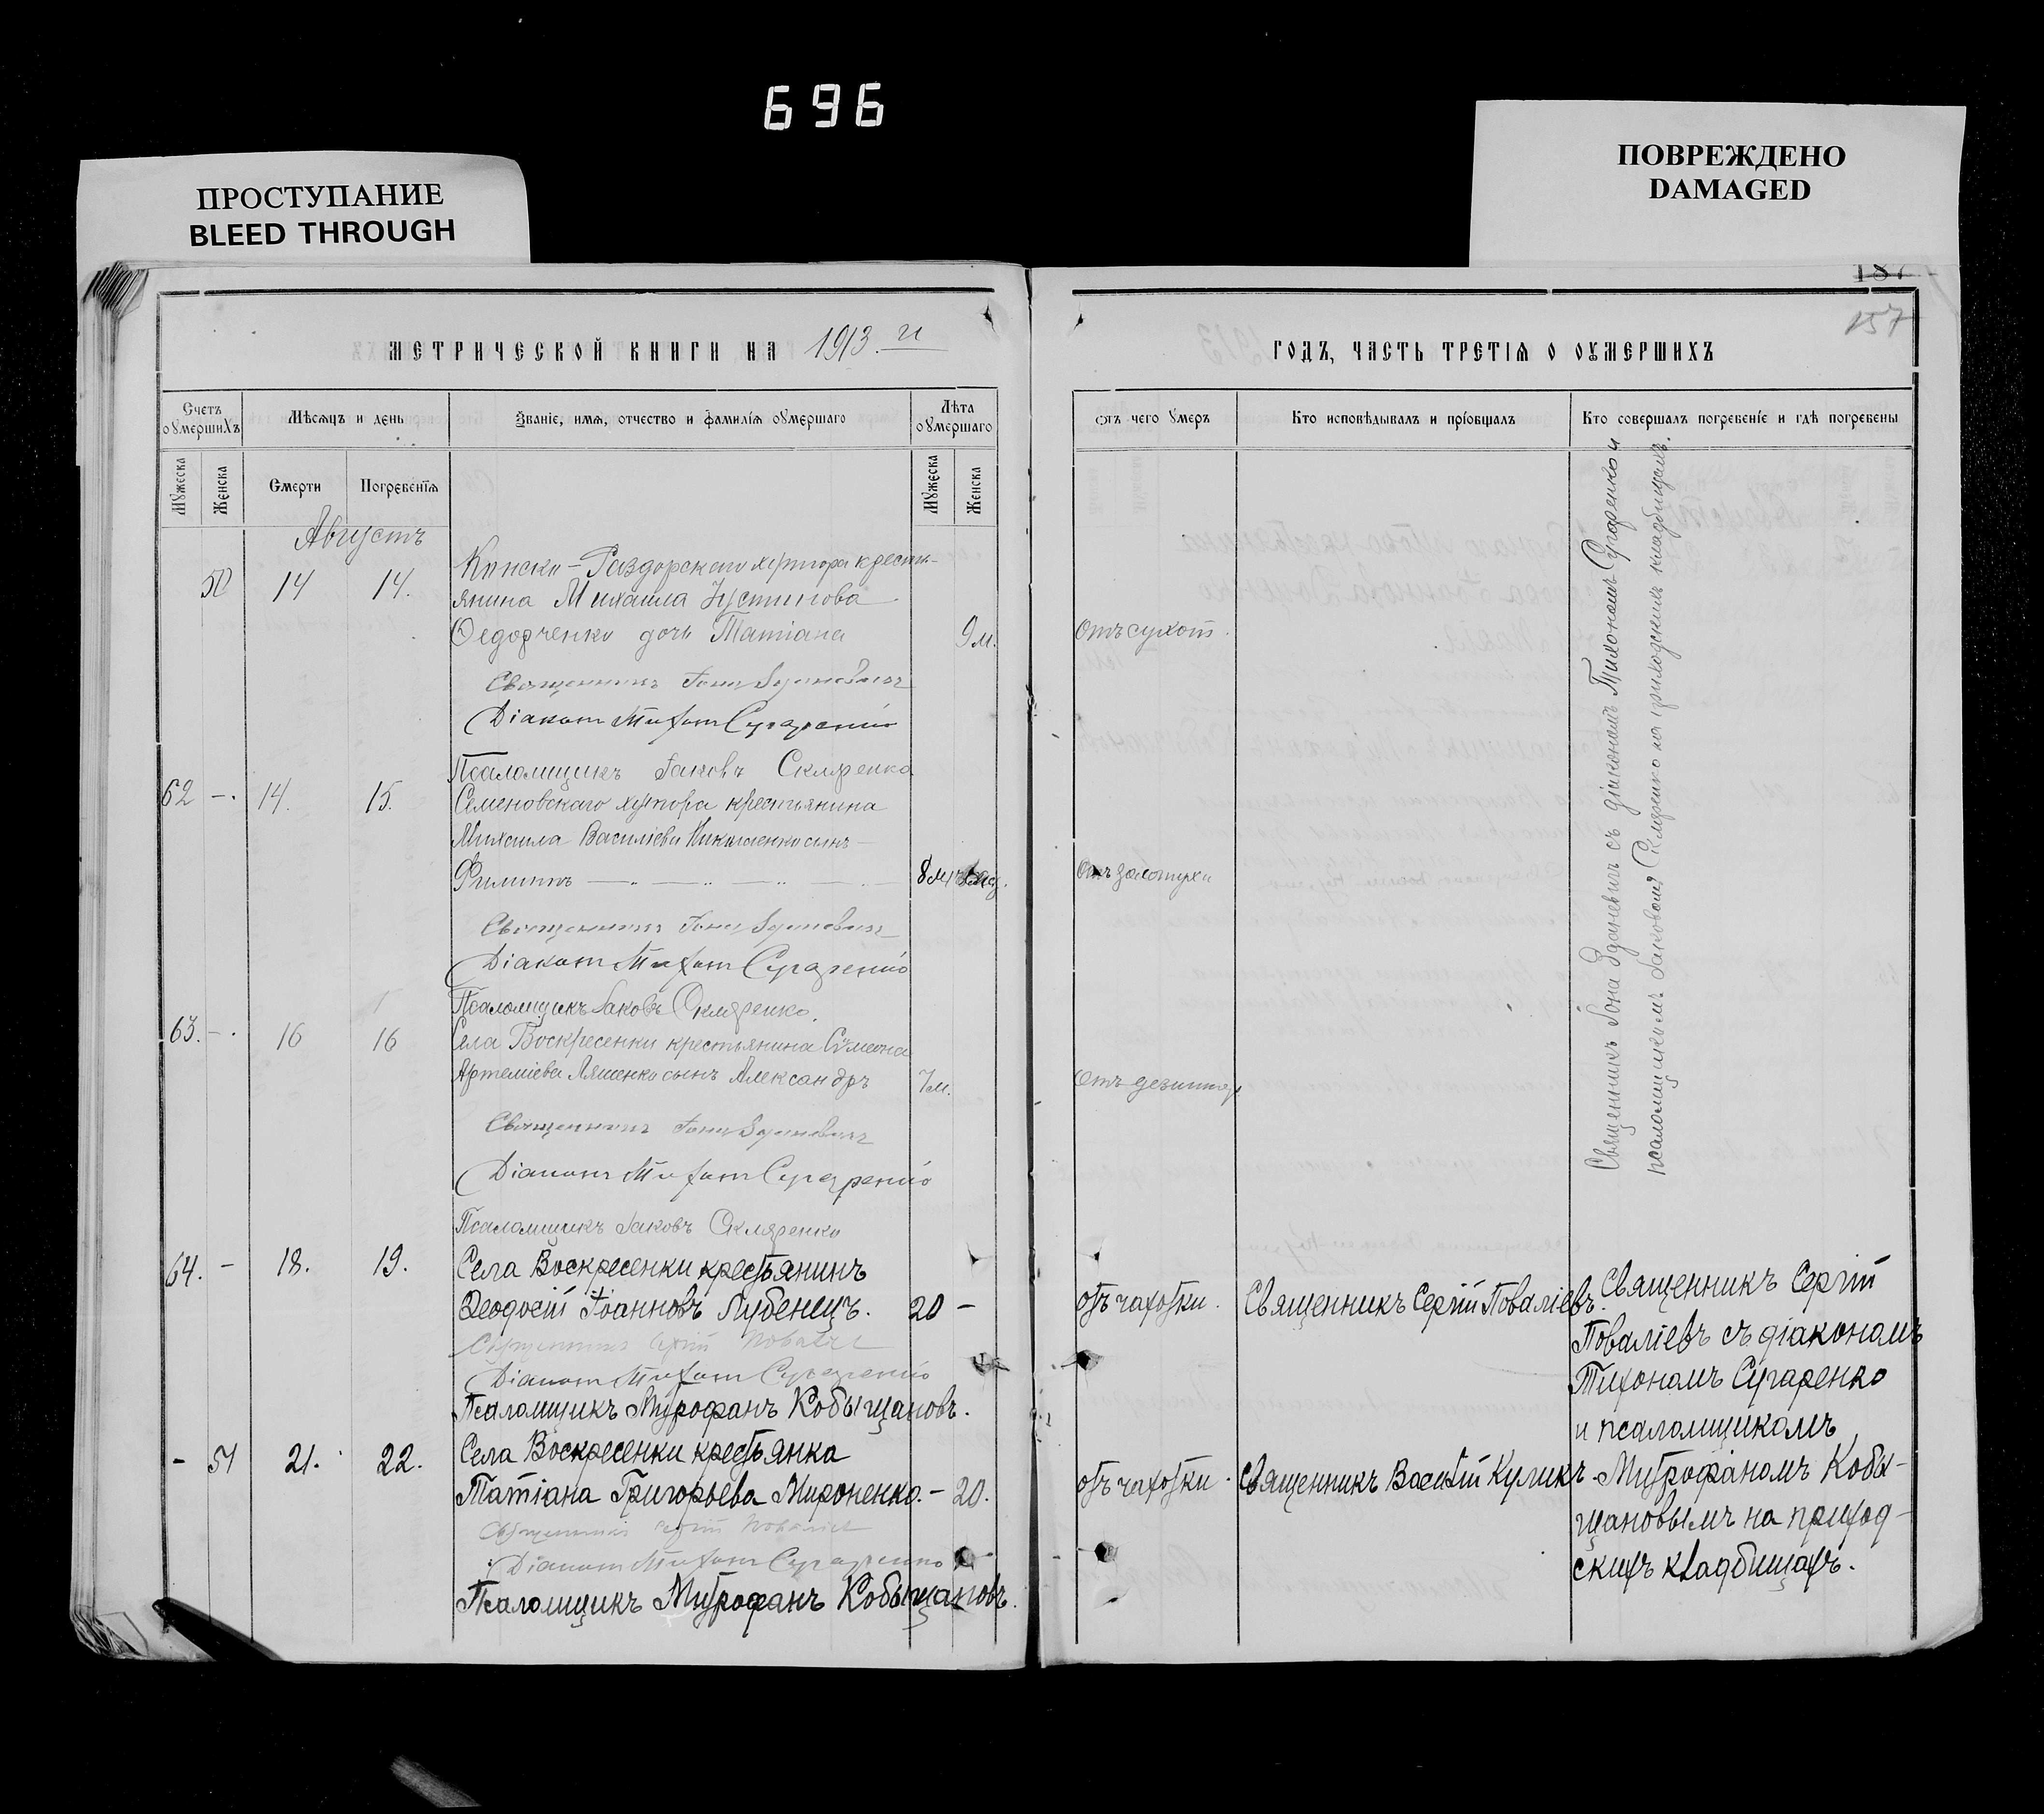 696
ПРОСТУПАНИЕ
BLEED THROUGH
ПОВРЕЖДЕНО
DAMAGED
187
157
МЕТРИЧЕСКОЙ КНИГИ НА 1913.й
ГОДЪ, ЧАСТЬ ТРЕТІѦ О ОУМЕРШИХЪ
Счетъ оумершихъ
Мѣсяцъ и день
Званіе, имѧ, отчество и фамиліѧ оумершаго
Лѣта оумершаго
отъ чего умеръ
Кто исповѣдывалъ и пріобщалъ
Кто совершалъ погребеніе и гдѣ погребены
Мужеска
Женска
Смерти
Погребеніѧ
Мужеска
Женска
Августъ
50 14 14. Конско-Раздорскаго хутора крестья-
янина Михаила Устинова
Ѳедорченко дочь Татіана 9 м. Отъ сухот.
Священникъ Іона Зданевичъ
Діаконъ Тихонъ Сугаренко
Псаломщикъ Іаковъ Скляренко
62 -. 14. 15. Семеновскаго хутора крестьянина
Михаила Василіева сынъ
Филиппъ 8 м. Отъ золотухи
Священникъ Іона Зданевичъ
Діаконъ Тихонъ Сугаренко
Псаломщикъ Іаковъ Скляренко.
63. -. 16 16 Села Воскресенки крестьянина Сумеона
Артеміева Ляшенко сынъ Александръ 7 м. Отъ дезинтер
Священникъ Іона Зданевичъ
Діаконъ Тихонъ Сугаренко
Псаломщикъ Іаковъ Скляренко
Священникъ Іона Зданевичъ съ діакономъ Тихономъ Сугаренко и
псаломщикомъ Іаковомъ Скляренко на приходскомъ кладбищахъ.
64. - 18. 19. Села Воскресенки крестьянинъ
Ѳеодосій Іоанновъ Лубенецъ. 20 - отъ чахотки. Священникъ Сергій Поваліевъ.
Священникъ Сергій Поваліевъ
Діаконъ Тихонъ Сугаренко
Псаломщикъ Митрофанъ Кобыщановъ.
- 51 21. 22. Села Воскресенки крестьянка
Татіана Григорьева Мироненко. - 20. отъ чахотки. Священникъ Василій Куликъ.
Священникъ Сергій Поваліевъ
Діаконъ Тихонъ Сугаренко
Псаломщикъ Митрофанъ Кобыщановъ.
Священникъ Сергій
Поваліевъ съ діакономъ
Тихономъ Сугаренко
и псаломщикомъ
Митрофаномъ Кобы-
щановымъ на приход-
скихъ кладбищахъ.